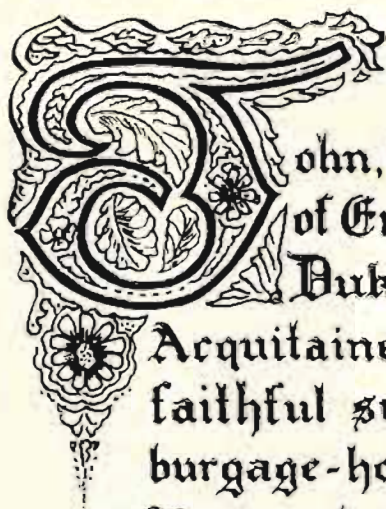 John,
of
Duk
Acquitaine
faithful
burgage-ho